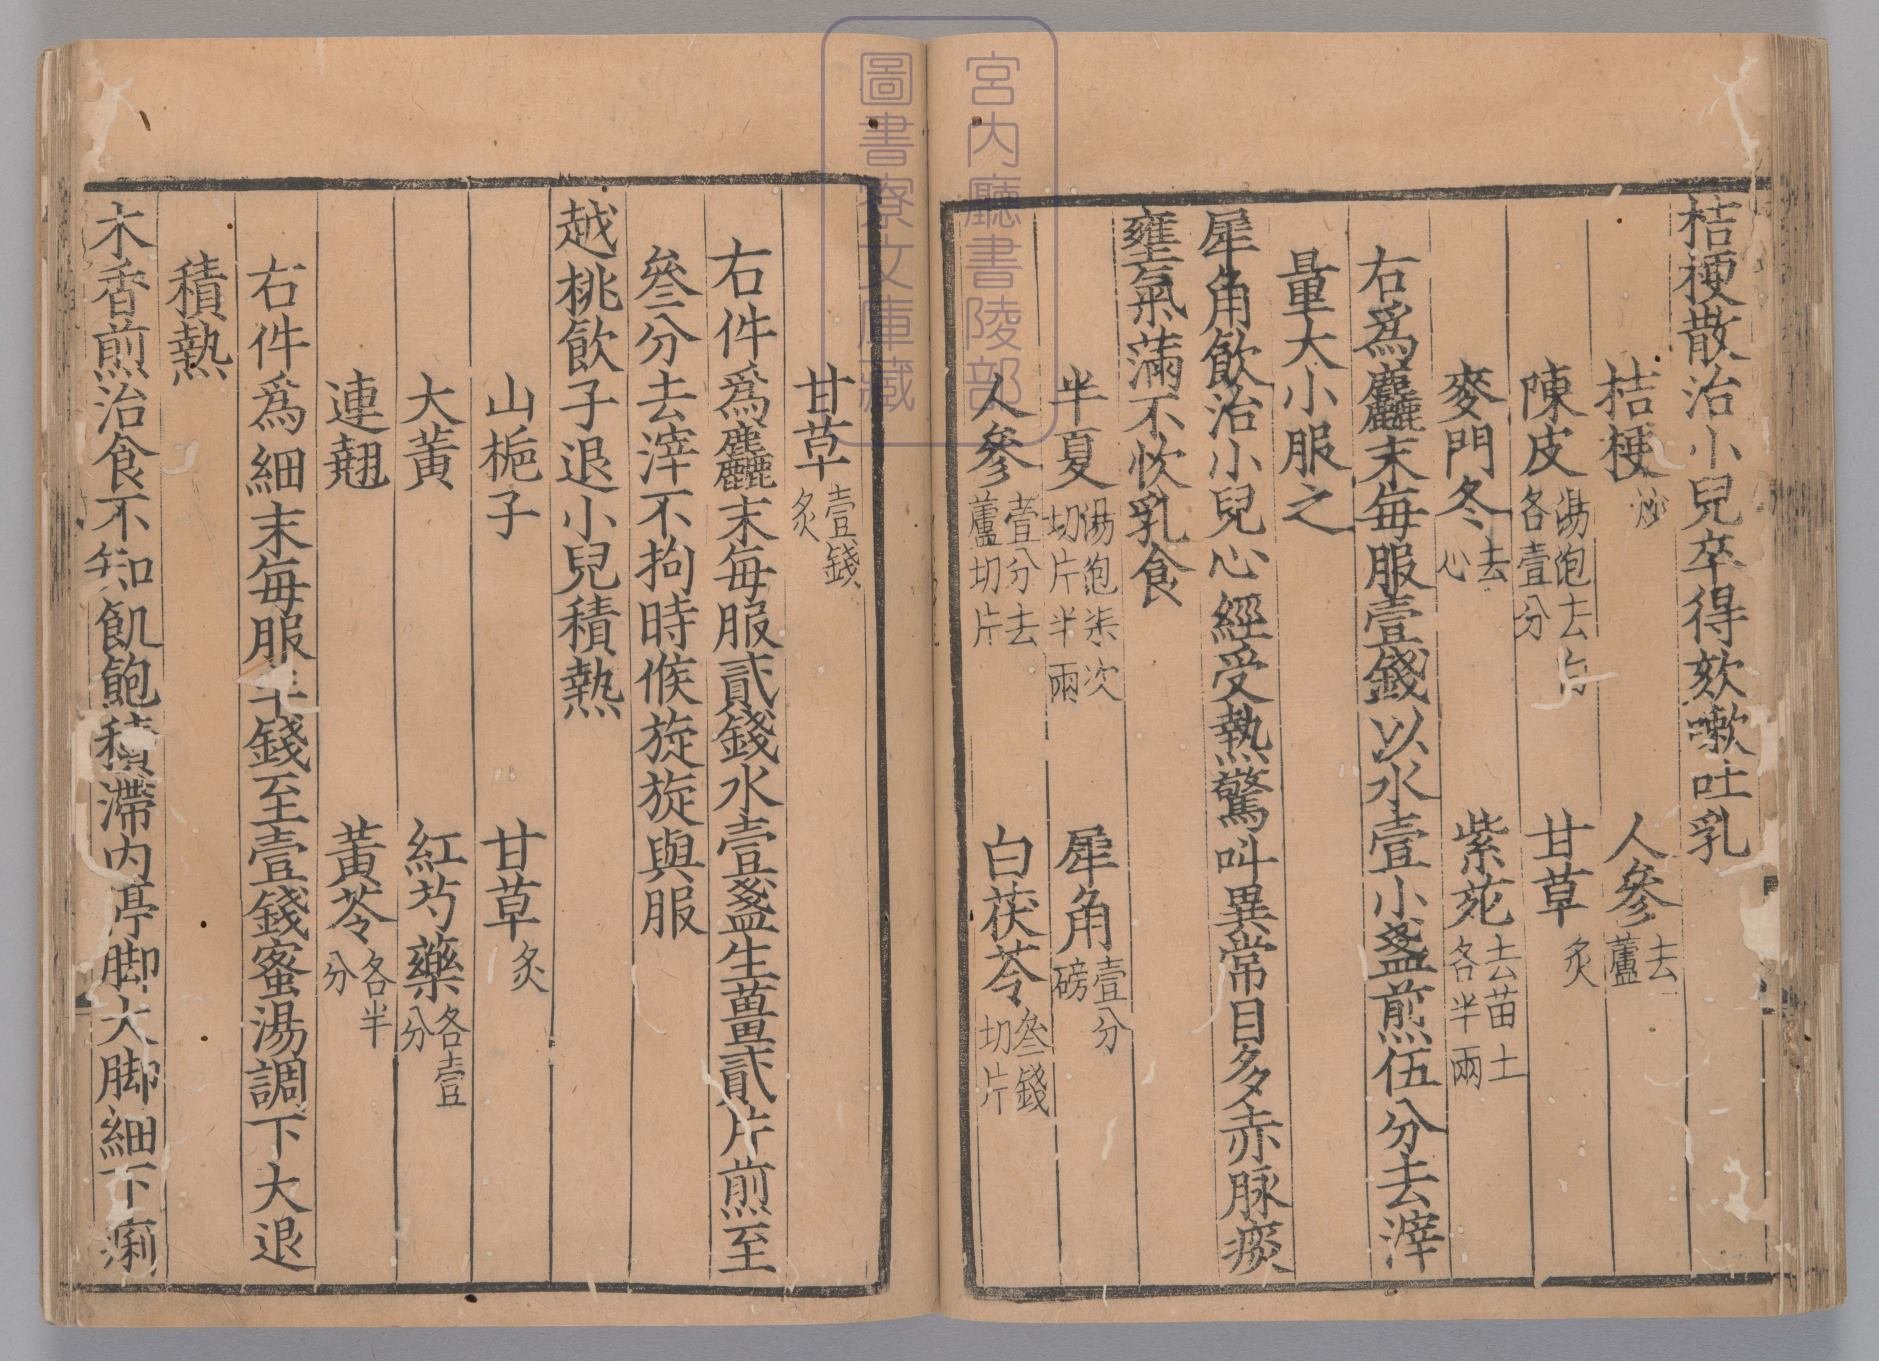 桔梗散治小兒卒得欬嗽吐乳
桔梗炒 人參去蘆
陳皮湯泡去白各壹分 甘草炙
麥門冬去心 紫苑去苗土各半兩
右爲麤末每服壹錢以水壹小盞煎伍分去滓
量大小服之
犀角飲治小兒心經受熱驚叫異常目多赤脉痰
壅氣滿不忺乳食
半夏湯泡柒次切片半兩 犀角壹分磅
人參壹分去蘆切片 白茯苓叄錢切片
甘草壹錢炙
右件爲麤末每服貳錢水壹盞生薑貳片煎至
叄分去滓不拘時候旋旋與服
越桃飲子退小兒積熱
山梔子 甘草炙
大黃 紅芍藥各壹分
連翹 黃芩各半分
右件爲細末每服半錢至壹錢蜜湯調下大退
積熱
木香煎治食不知飢飽積滯内停脚大脚細下痢
宮内廳書陵部
圖書寮文庫藏